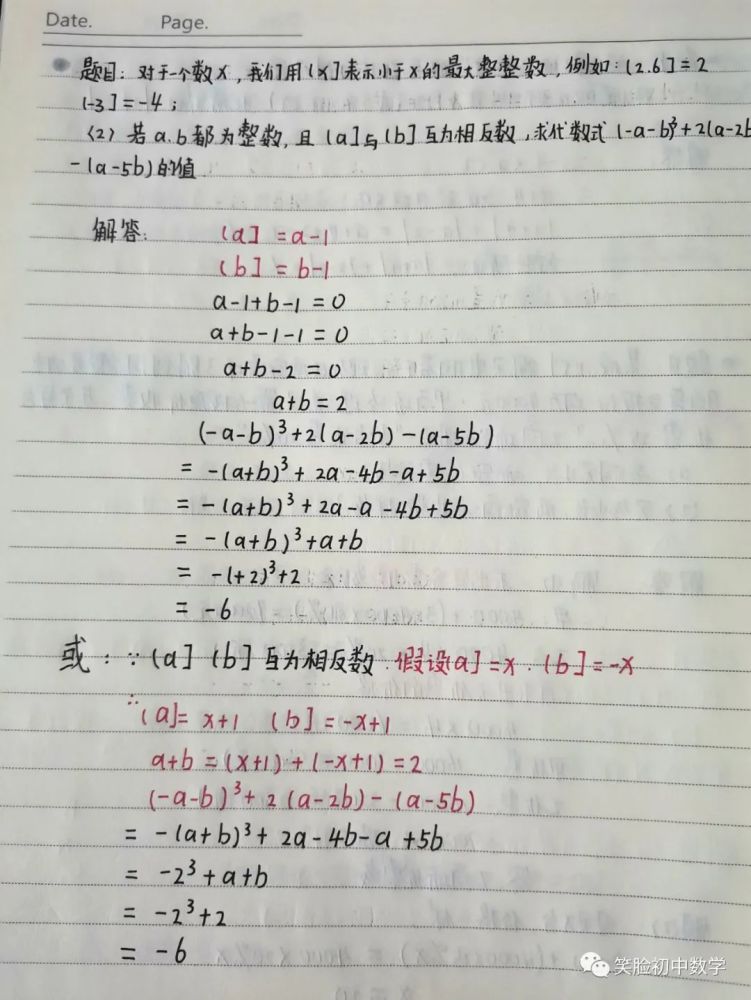 Date. Page.
题目：对于一个数x，我们用(x]表示小于x的最大整整数，例如：(2.6]=2
(-3]=-4；
(2) 若a.b都为整数，且(a]与(b]互为相反数，求代数式(-a-b)³+2(a-2b
-(a-5b)的值
解答： (a]=a-1
(b]=b-1
a-1+b-1=0
a+b-1-1=0
a+b-2=0
a+b=2
(-a-b)³+2(a-2b)-(a-5b)
=-(a+b)³+2a-4b-a+5b
=-(a+b)³+2a-a-4b+5b
=-(a+b)³+a+b
=-(+2)³+2
=-6
或：∵(a] (b]互为相反数.假设(a]=x.(b]=-x
∵(a]=x+1 (b]=-x+1
a+b=(x+1)+(-x+1)=2
(-a-b)³+2(a-2b)-(a-5b)
=-(a+b)³+2a-4b-a+5b
=-2³+a+b
=-2³+2
=-6
笑脸初中数学